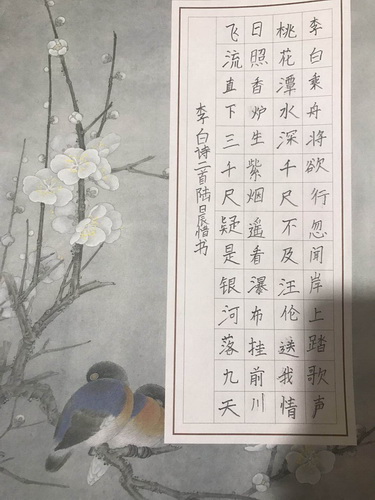 李白乘舟将欲行忽闻岸上踏歌声
桃花潭水深千尺不及汪伦送我情
日照香炉生紫烟遥看瀑布挂前川
飞流直下三千尺疑是银河落九天
李白诗二首陆晨惜书